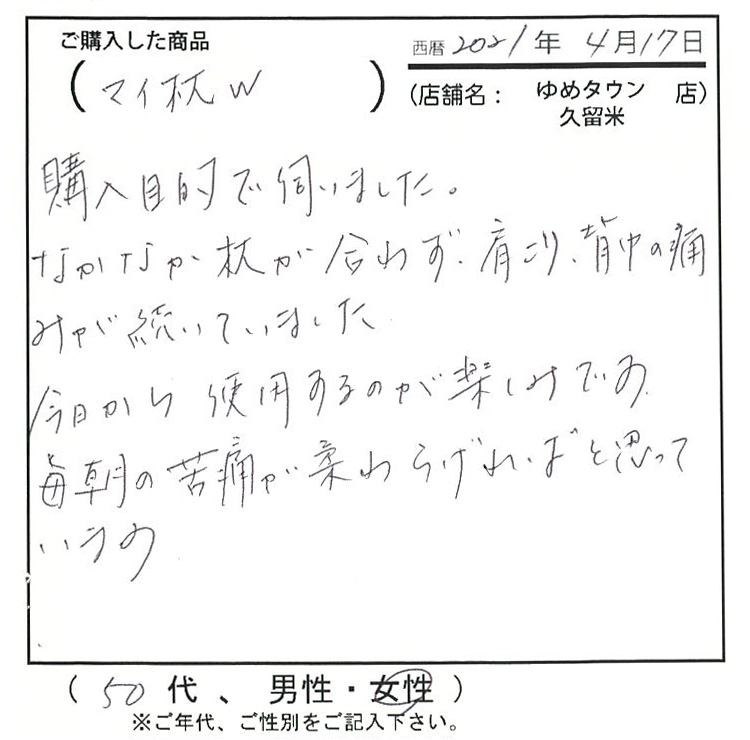 ご購入した商品
西暦 2021年 4月17日
( マイ枕W )
(店舗名: ゆめタウン 久留米 店)
購入目的で伺いました。
なかなか枕が合わず、肩こり、背中の痛
みが続いていました
今日から使用するのが楽しみです
毎朝の苦痛が柔わらげればと思って
います
( 50 代 、 男性・女性 )
※ご年代、ご性別をご記入下さい。